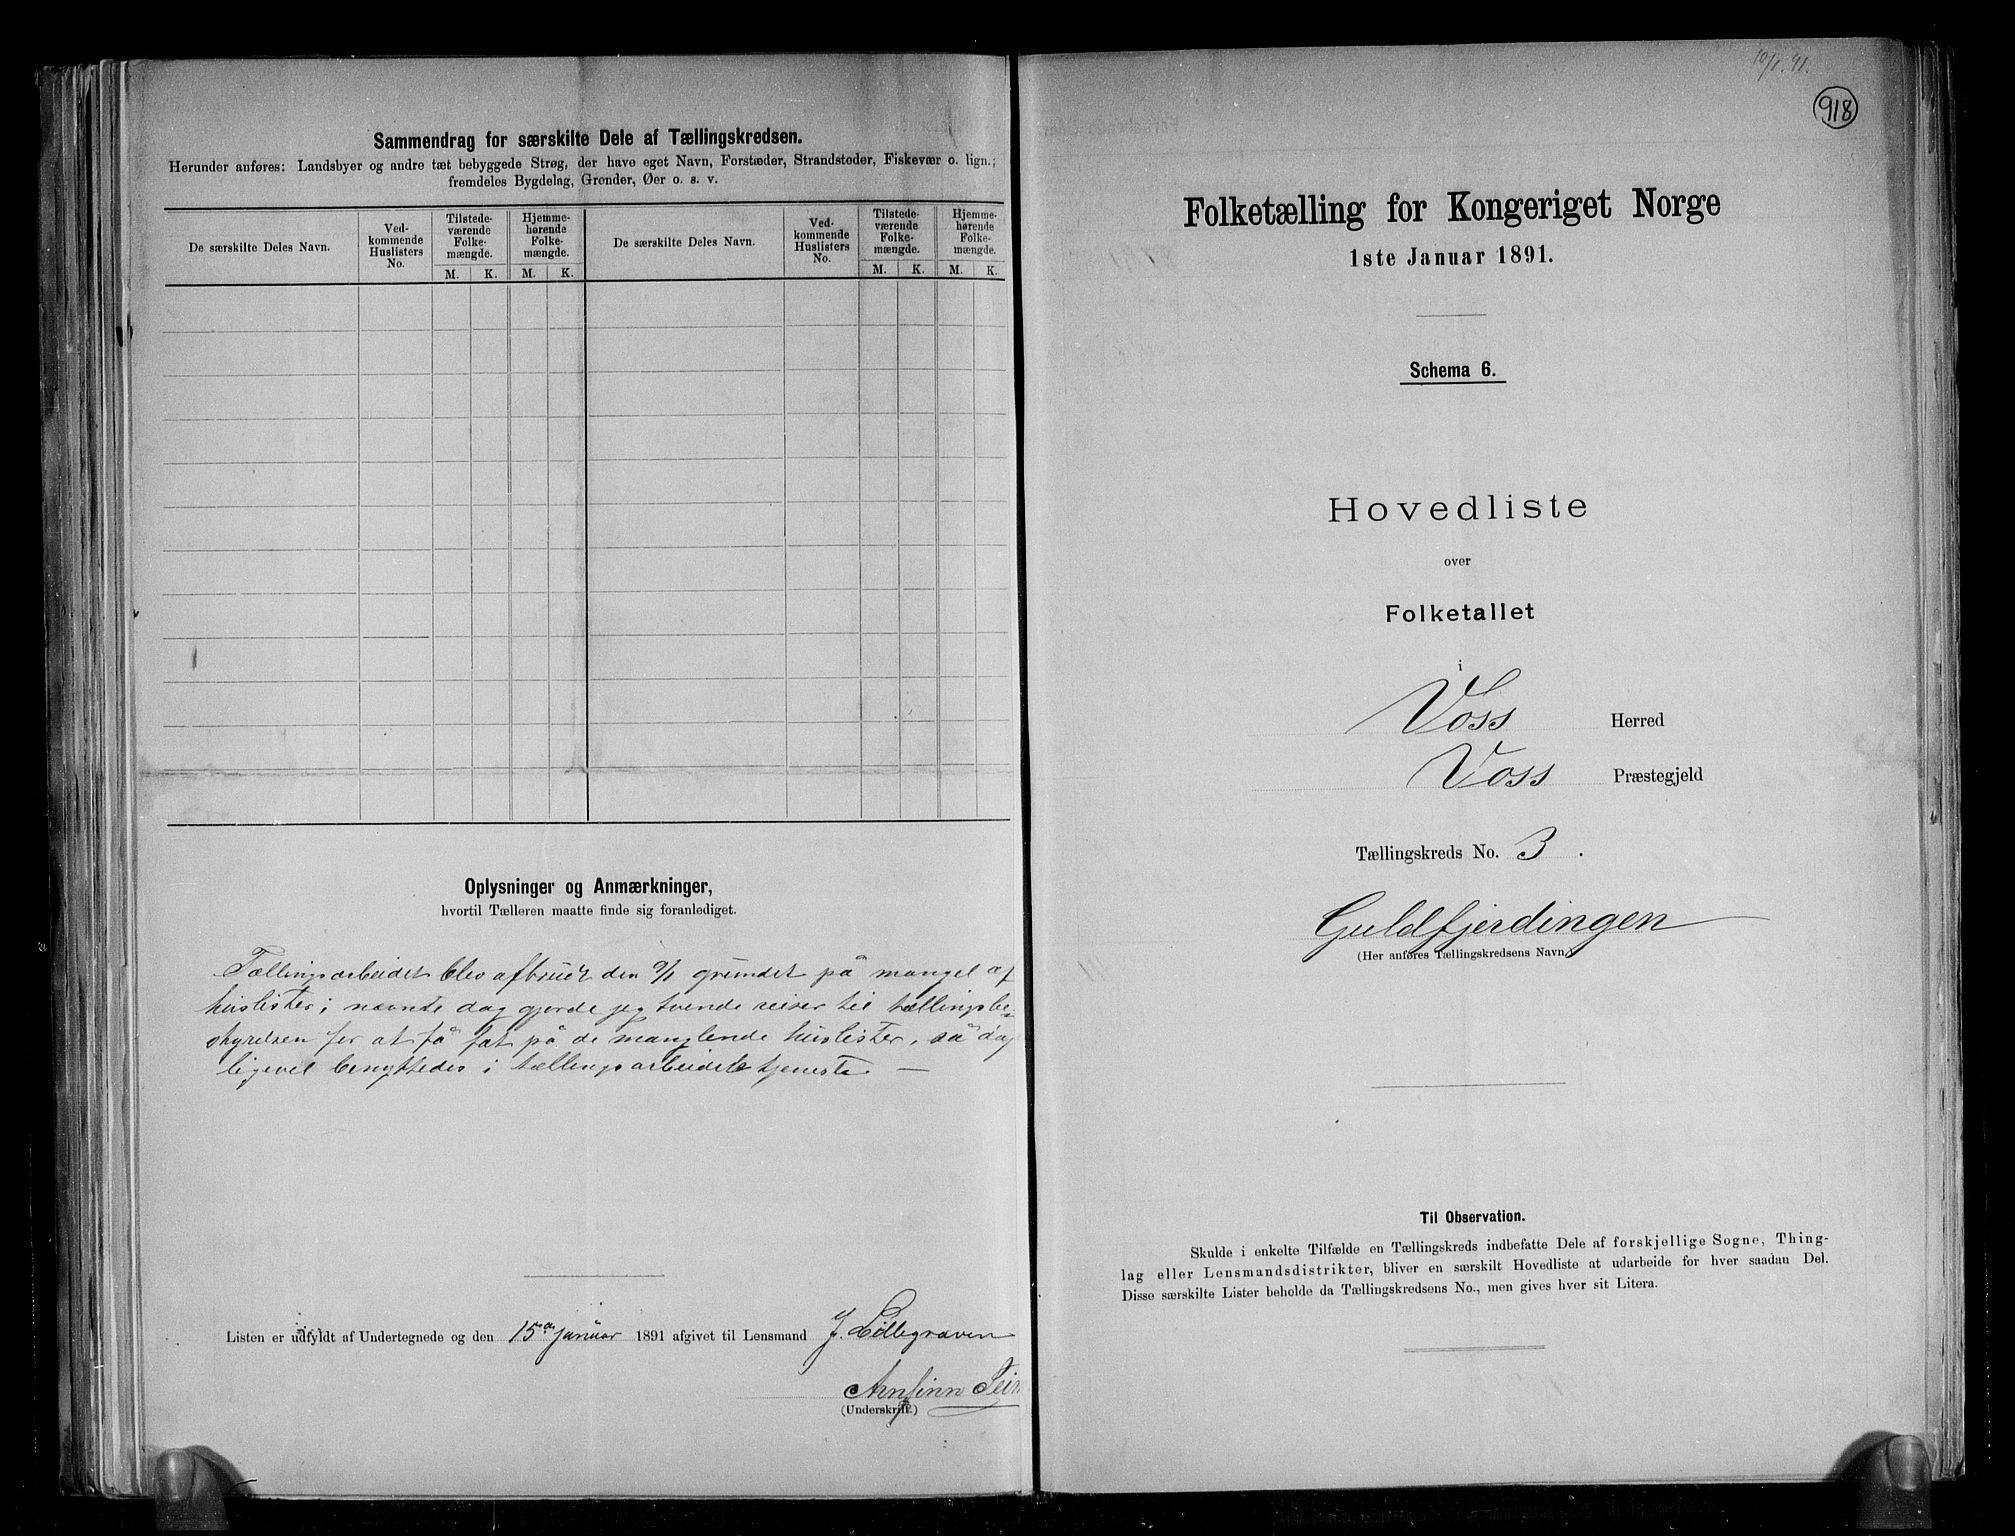 Sammendrag for særskilte Dele af Tællingskredsen.
Herunder anføres: Landsbyer og andre tæt bebyggede Strøg, der have eget Navn, Forstæder, Strandsteder, Fiskevær o. lign.;
fremdeles Bygdelag, Grender, Øer o. s. v.
De særskilte Deles Navn.
Ved-
kommende
Huslisters
No.
Tilstede-
værende
Folke-
mængde.
M. K.
Hjemme-
hørende
Folke-
mængde.
M. K.
De særskilte Deles Navn.
Ved-
kommende
Huslisters
No.
Tilstede-
værende
Folke-
mængde.
M. K.
Hjemme-
hørende
Folke-
mængde.
M. K.
Oplysninger og Anmærkninger,
hvortil Tælleren maatte finde sig foranlediget.
Tællingsarbeidet blev afbrudt den 9/1 grundet på mangel af
huslister; nævnte dag gjorde jeg tvende reiser til tællingsbe-
styrelsen for at få fat på de manglende huslister, så dag
ligevel benyttedes i tællingsarbeidets tjeneste —
Listen er udfyldt af Undertegnede og den 15de januar 1891 afgivet til Lensmand J. Lillegraven
Arnfinn
(Underskrift.)
10/1. 91.
918
Folketælling for Kongeriget Norge
1ste Januar 1891.
Schema 6.
Hovedliste
over
Folketallet
i
Voss Herred
Voss Præstegjeld
Tællingskreds No. 3.
Guldfjerdingen
(Her anføres Tællingskredsens Navn.)
Til Observation.
Skulde i enkelte Tilfælde en Tællingskreds indbefatte Dele af forskjellige Sogne, Thing-
lag eller Lensmandsdistrikter, bliver en særskilt Hovedliste at udarbeide for hver saadan Del.
Disse særskilte Lister beholde da Tællingskredsens No., men gives hver sit Litera.